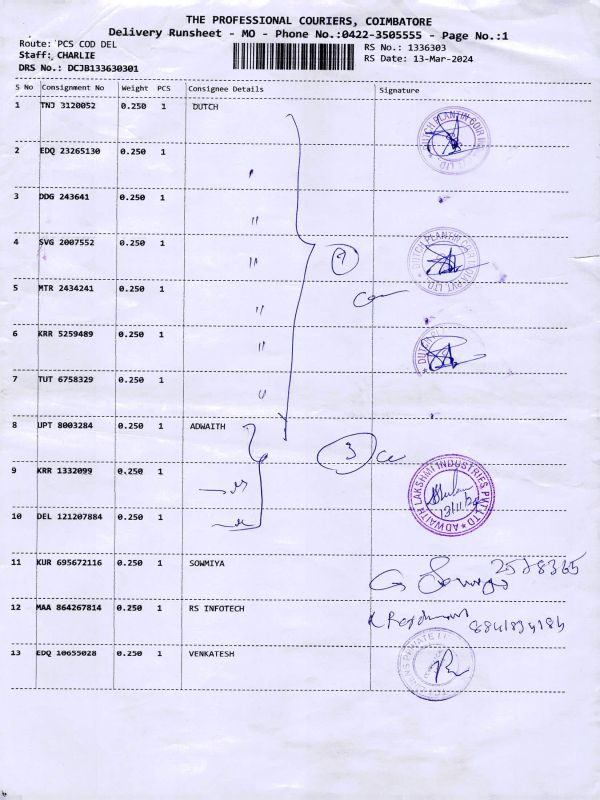 THE PROFESSIONAL COURIERS, COIMBATORE
Delivery Runsheet - MO - Phone No.:0422-3505555 - Page No.:1
Route: PCS COD DEL
RS No.: 1336303
Staff: CHARLIE
RS Date: 13-Mar-2024
DRS No.: DCJB133630301
S No Consignment No Weight PCS Consignee Details Signature
1 TNJ 3120052 0.250 1 DUTCH
2 EDQ 23265130 0.250 1
3 DDG 243641 0.250 1 "
4 SVG 2007552 0.250 1 "
5 MTR 2434241 0.250 1
6 KRR 5259489 0.250 1 "
7 TUT 6758329 0.250 1
8 UPT 8003284 0.250 1 ADWAITH
3
9 KRR 1332099 0.250 1
ADWAITH LAKSHMI INDUSTRIES PVT LTD
10 DEL 121207884 0.250 1
11 KUR 695672116 0.250 1 SOWMIYA
12 MAA 864267814 0.250 1 RS INFOTECH
13 EDQ 10655028 0.250 1 VENKATESH